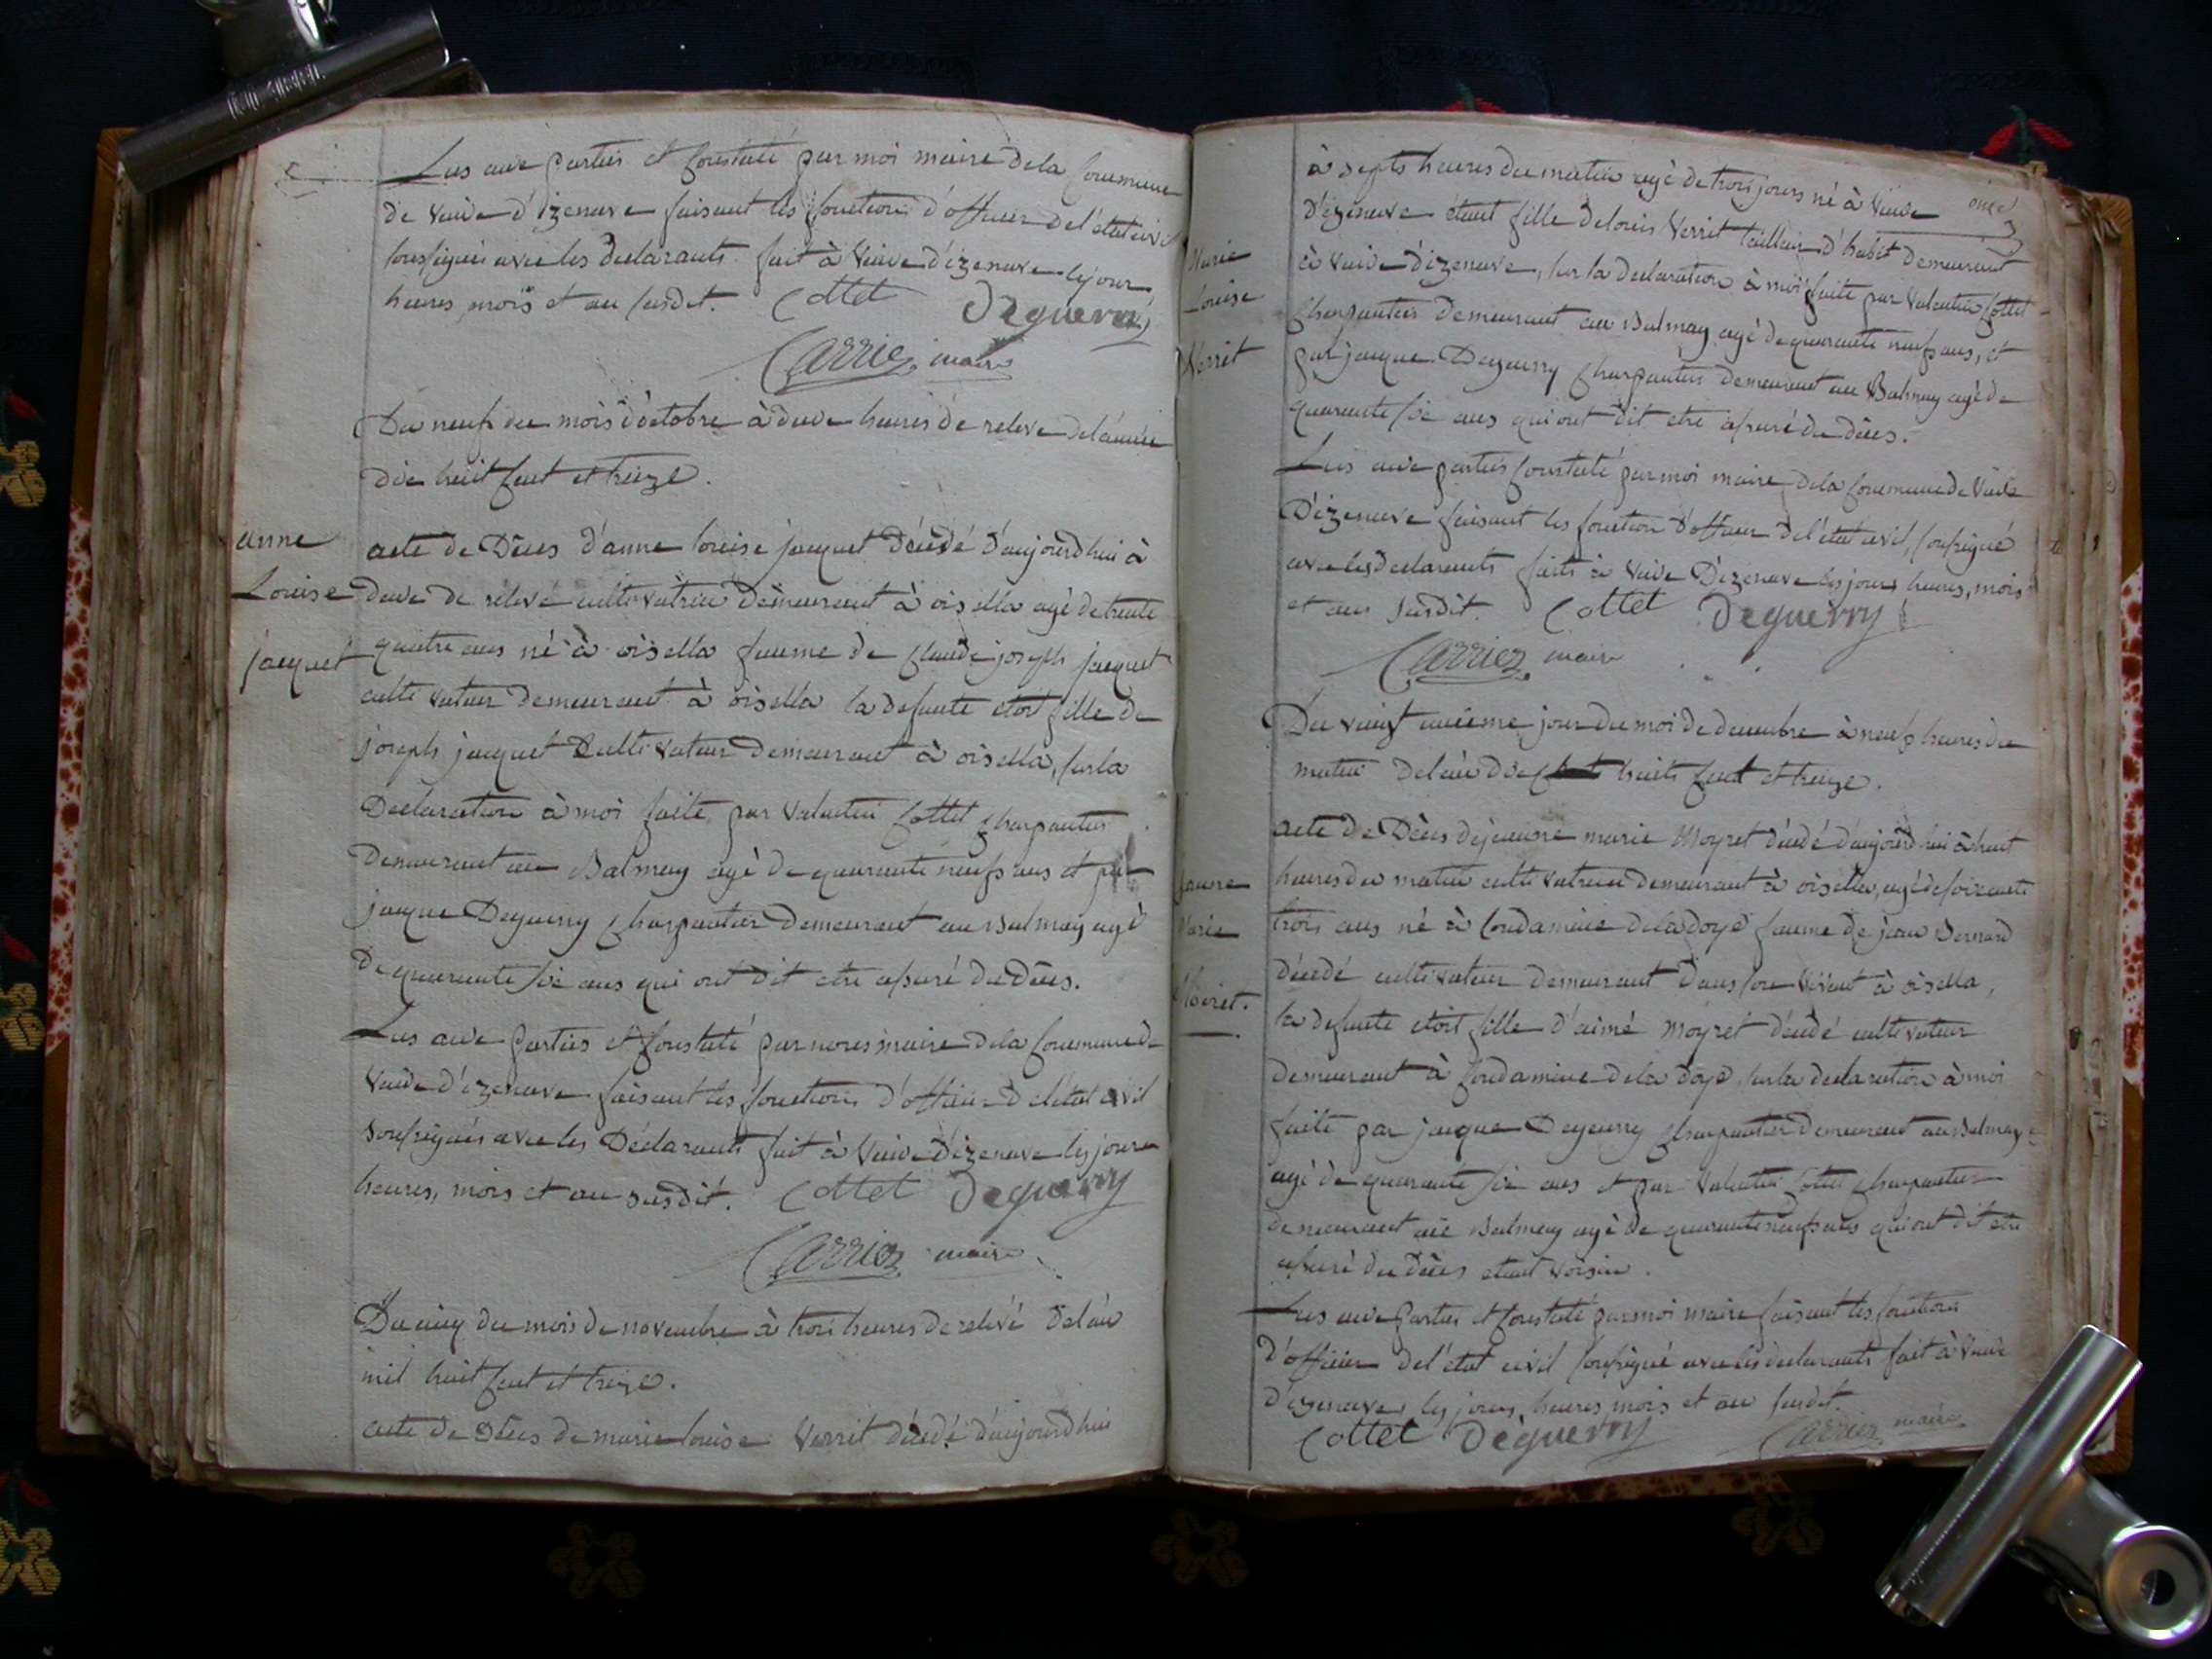 Lus aux parties et Constaté par moi maire de la Commune
de vuide d'izenave faisant les fonctions d'officier de l'état civil
sousignés avec les declarants. fait à vuide d'izenave les jours
heures mois et an susdit. Cottet Deguerry
Carrier maire
Du neuf du mois d'octobre à deux heures de relevé de l'année
dix huit Cent et treize.
anne
Louise
jacquet
acte de Déces d'anne louise jacquet décédé d'aujourd'hui à
deux de relevé cultivatrice demeurant à oisella agé de trente
quatre ans né à oisella famme de Claude joseph jacquet
cultivateur demeurant à oisella la defunte etoit fille de
joseph jacquet Cultivateur demeurant à oisella, sur la
Declaration à moi faite par valentin Cottet Charpentier
demeurant au Balmay agé de quarante neuf ans et par
jacque Deguerry Charpentier demeurant au Balmay agé
de quarante six ans qui ont dit etre assuré du déces.
Lus aux parties et Constaté par nous maire de la Commune de
vuide d'izenave faisant les fonctions d'officier de l'état civil
sousignés avec les Déclarants fait à vuide d'izenave les jours
heures, mois et an susdit. Cottet Deguerry
Carrier maire
Du cinq du mois de novembre à trois heures de relevé de l'an
mil huit Cent et treize.
acte de Déces de marie louise verrit décédé d'aujourd'hui
onze
à septs heures du matin agé de trois jours né à vuide
d'izenave étant fille de louis verrit tailleur d'habit demeurant
à vuide d'izenave, sur la declaration à moi faite par valentin Cottet
Charpentier demeurant au Balmay agé de quarante neuf ans, et
par jacque Deguerry Charpentier demeurant au Balmay agé de
quarante six ans qui ont dit etre assuré du déces.
Marie
Louise
Verrit
Lus aux parties Constaté par moi maire de la Commune de vuide
D'izenave faisant les fonction d'officier de l'état civil, sousigné
avec les declarants faits à vuide D'izenave les jours heures, mois
et an susdit. Cottet Deguerry
Carrier maire
Du vingt unième jour du moi de decembre à neuf heures du
matin de l'an dix huits Cent et treize.
jeanne
Marie
Moiret.
acte de Déces de jeanne marie Moyret décédé d'aujourd'hui à huit
heures du matin cultivatrice demeurant à oisella, agé de soixante
trois ans né à Condamine de la doye famme de jean Bernard
décedé cultivateur demeurant dans son vivant à oisella,
la defunte etoit fille d'aimé moyret décédé cultivateur
demeurant à Condamine de la doye, sur la declaration à moi
faite par jacque Deguerry Charpentier demeurant au Balmay
agé de quarante six ans et par valentin Cottet Charpentier
demeurant au Balmay agé de quarante neuf ans qui ont dit etre
assuré du déces etant voisin.
Lus aux parties et Constaté par moi maire faisant les fonctions
d'officier de l'état civil sousigné avec les declarants fait à vuide
d'izenave, les jours, heures, mois et an susdit.
Cottet Dèguerry Carrier maire